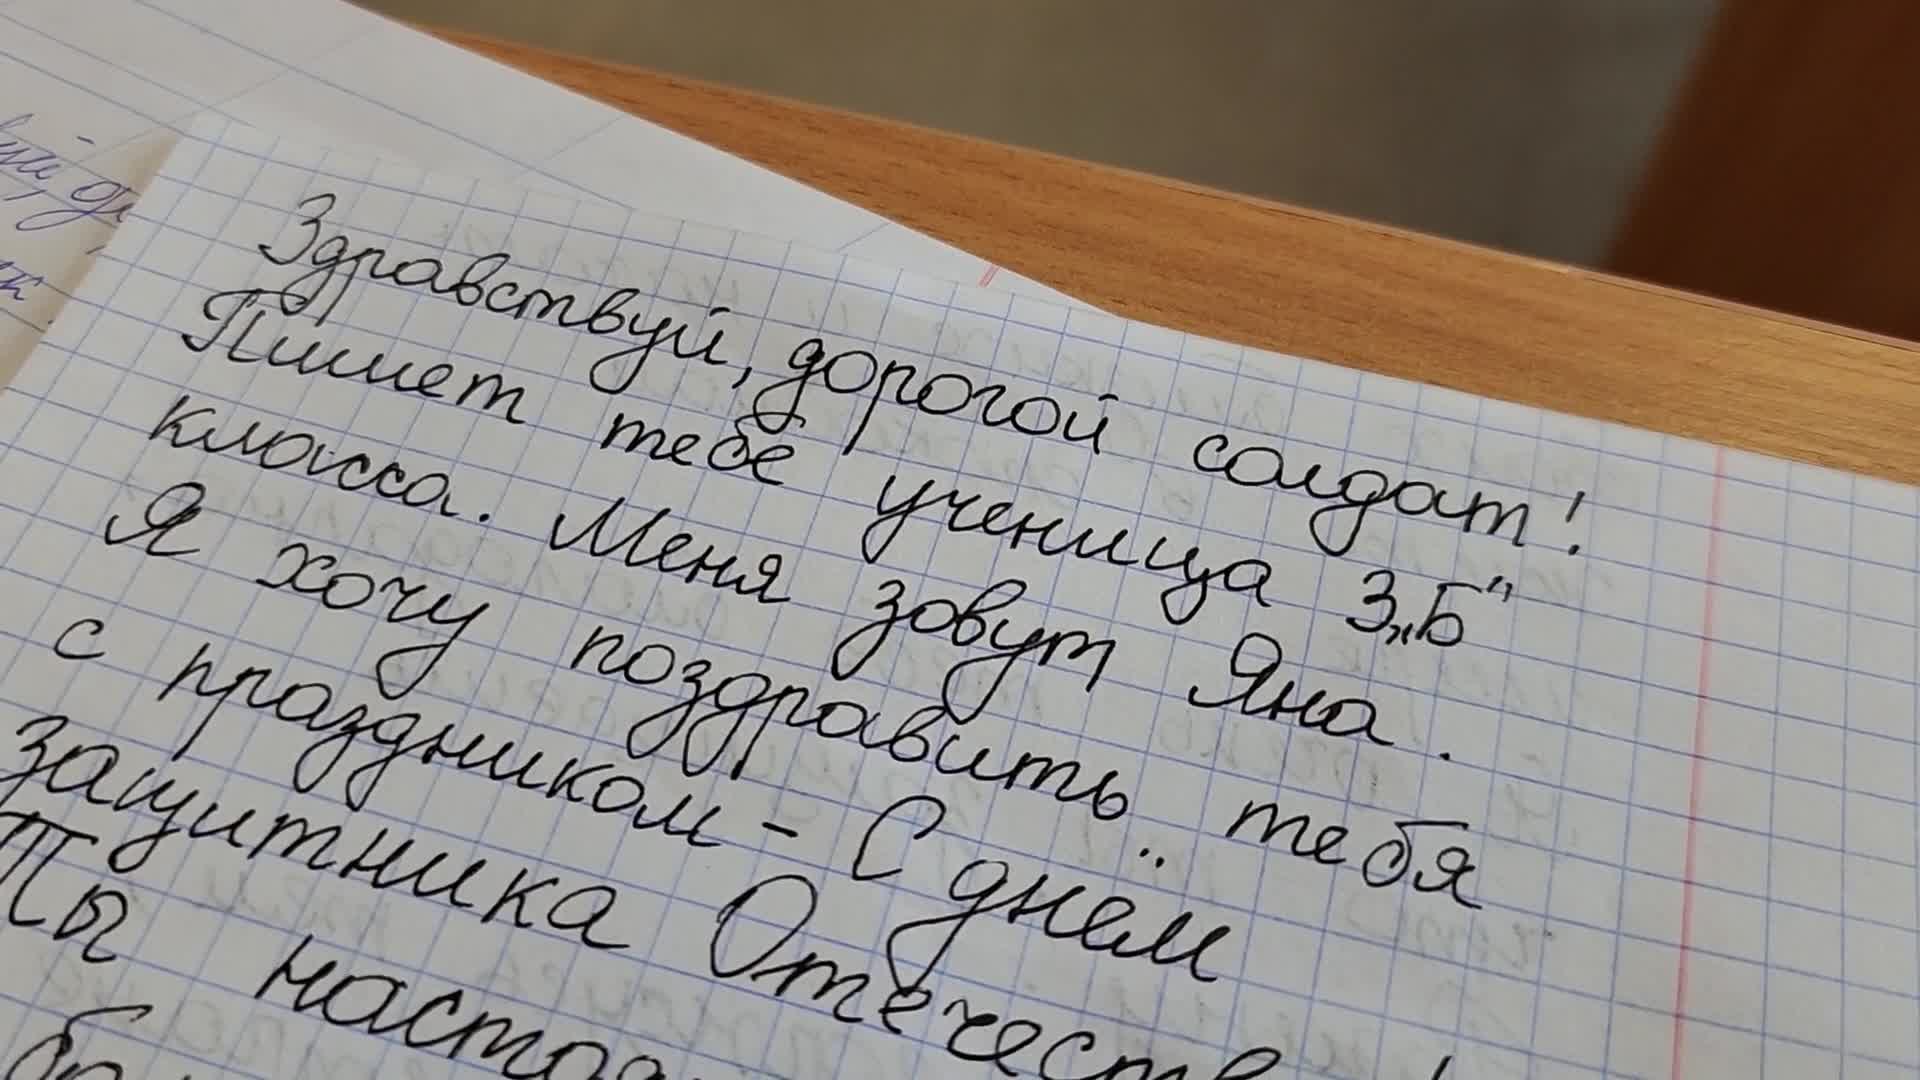 Здравствуй, дорогой солдат!
Пишет тебе ученица 3„Б"
класса. Меня зовут Яна.
Я хочу поздравить тебя
с праздником - С днём
защитника Отечеств
Ты